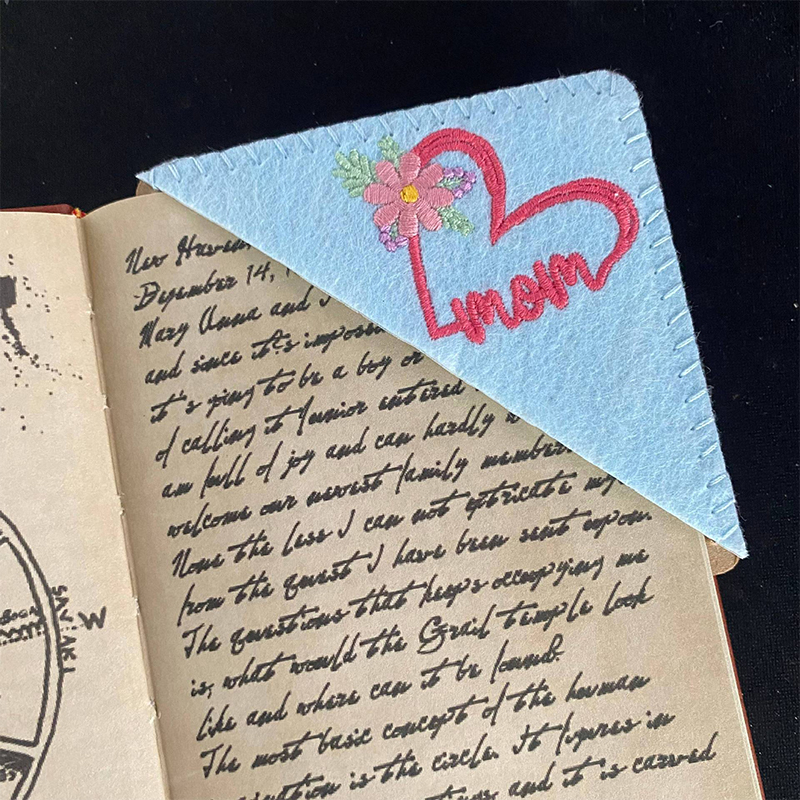 mom
New Haven
December 14, 1
Mary Anna and I
and since it's imposs
it's going to be a boy or
of calling it Junior entered
am full of joy and can hardly w
welcome our newest family member
None the less I can not extricate my
from the quest I have been sent upon.
The questions that keeps occupying me
is, what would the Grail temple look
like and where can it be found?
The most basic concept of the human
ination is the circle. It figures in
and it is carved
W